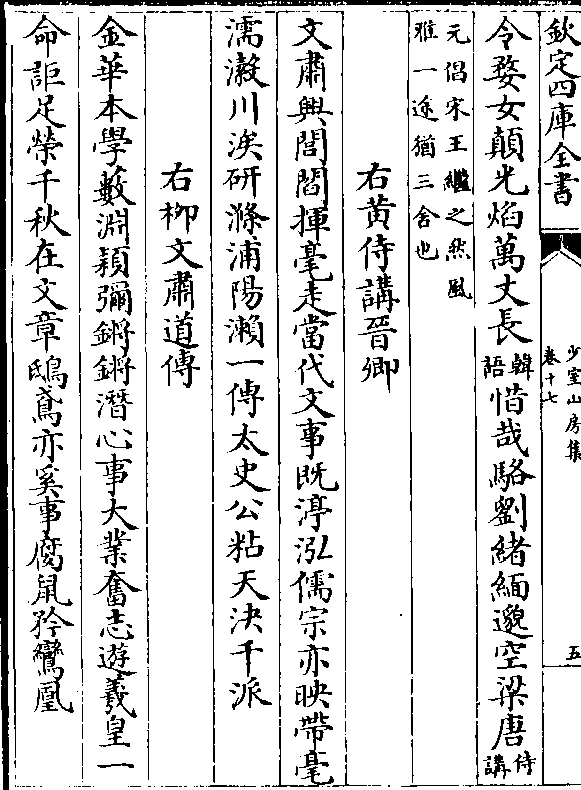 欽定四庫全書
少室山房集
卷十七
五
令婺女顛光焰萬丈長韓語惜哉駱劉緒緬邈空梁唐侍講
元倡宋王繼之然風
雅一途猶三舍也
右黄侍講晉卿
文肅興閭閻揮毫走當代文事既渟泓儒宗亦映帶毫
濡瀫川涘研滌浦陽瀨一傳太史公粘天決千派
右柳文肅道傳
金華本學藪淵穎彌鏘鏘潛心事大業奮志遊羲皇一
命詎足榮千秋在文章鴟鳶亦奚事腐鼠矜鸞凰